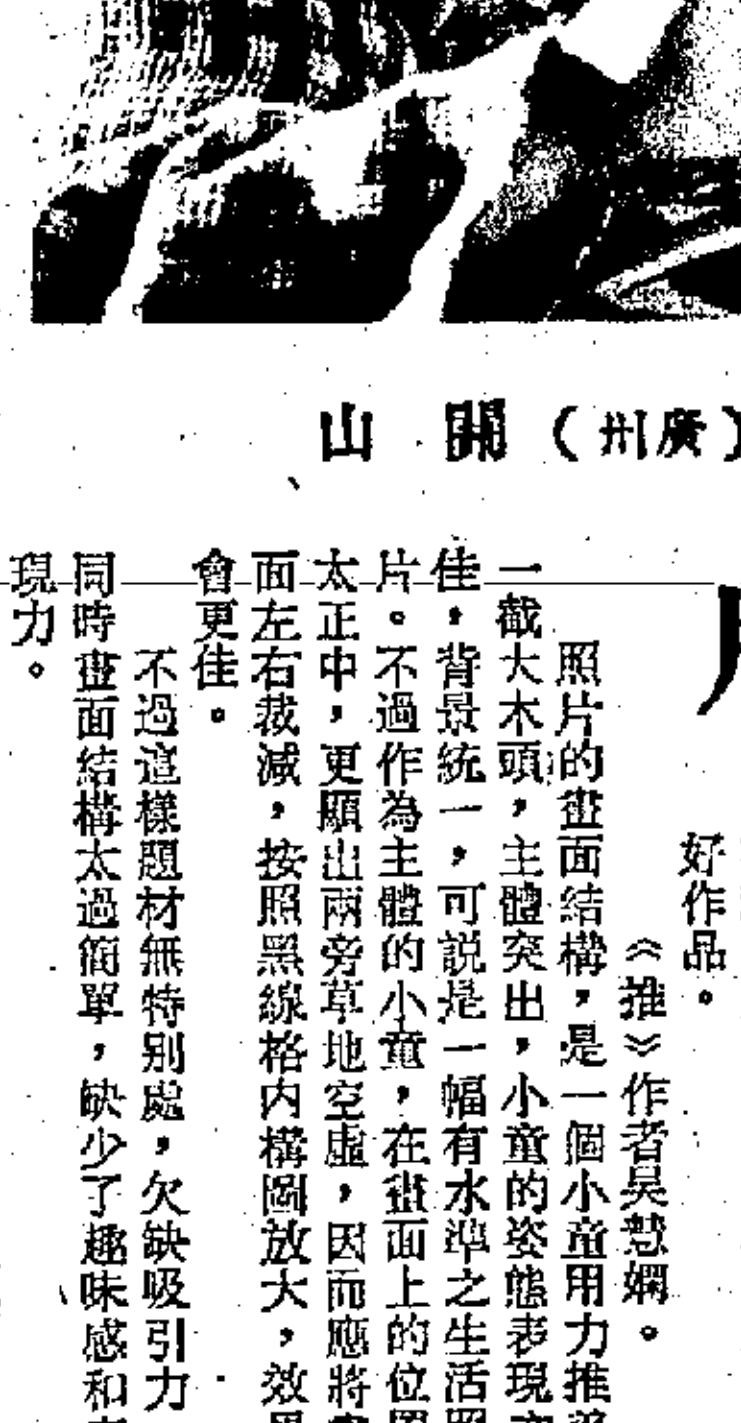 （廣州）開山
好作品。
《推》作者吳慧嫻。
照片的畫面結構，是一個小童用力推着
一截大木頭，主體突出，小童的姿態表現
佳，背景統一，可説是一幅有水準之生活照
片。不過作為主體的小童，在畫面上的位置
太正中，更顯出兩旁草地空虛，因而應將
面左右裁減，按照黑線格内構圖放大，效果
會更佳。
不過這樣題材無特别處，欠缺吸引力
同時畫面結構太過簡單，缺少了趣味感和
現力。